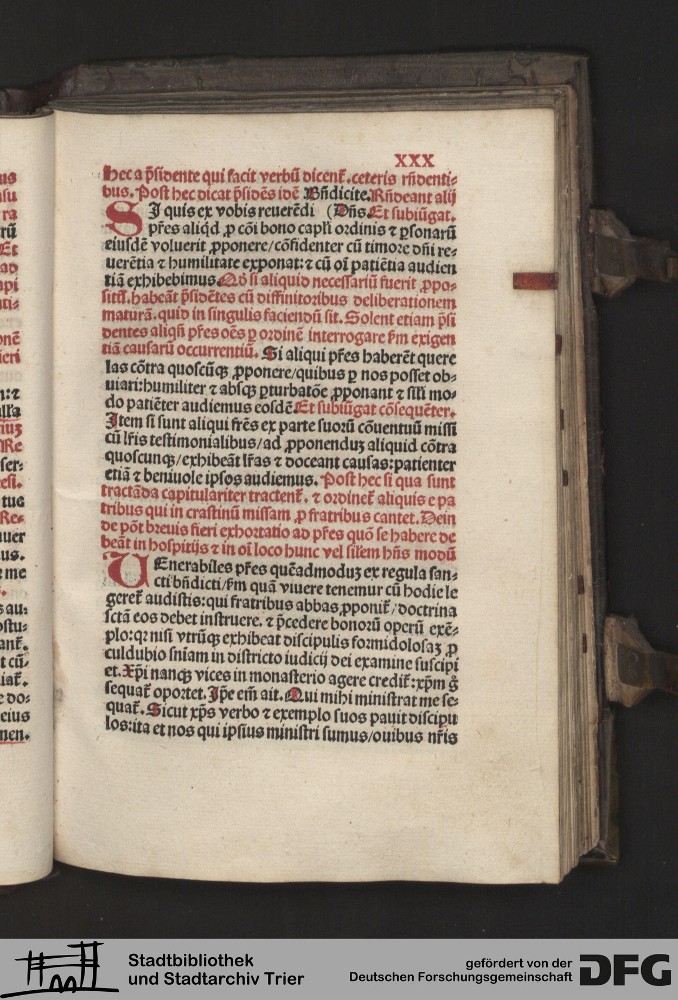 us
su
ra
rū
Et
ad
api
ti-
onē
ieri
n:⁊
ulla
Re
ser:
esi.
tue
Re-
uer
us.
r me
s au:
ostu-
ank̄.
t cū-
iat̄.
e do:
eius
nen.
XXX
hec a p̄sidente qui facit verbū dicent̄. ceteris rn̄denti-
bus. Post hec dicat p̄sidēs idē Bn̄dicite. Rn̄deant alij
SI quis ex vobis reuerēdi (Dn̄s. Et subiūgat.
pr̄es aliq̇d ꝓ cōi bono capl̄i ordinis ⁊ ꝑsonarū
eiusdē voluerit ꝓponere/cōfidenter cū timore dn̄i re-
uerētia ⁊ humilitate exponat: ⁊ cū oī patiētia audien
tiā exhibebimus. Qḋ si aliquid necessariū fuerit ꝓpo-
sitū. habeāt p̄sidētes cū diffinitoribus deliberationem
maturā. quid in singulis faciendū sit. Solent etiam p̄si
dentes aliqn̄ pr̄es oēs ꝑ ordinē interrogare ẜm exigen
tiā causarū occurrentiū. Si aliqui pr̄es haberēt quere
las cōtra quoscūqꝫ ꝓponere/quibus ꝑ nos posset ob-
uiari: humiliter ⁊ absqꝫ ꝑturbatōe ꝓponant ⁊ sil̄i mo-
do patiēter audiemus eosdē. Et subiūgat cōsequēter.
Item si sunt aliqui fr̄es ex parte suorū cōuentuū missi
cū lr̄is testimonialibus/ad ꝓponenduꝫ aliquid cōtra
quoscunqꝫ/exhibeāt lr̄as ⁊ doceant causas: patienter
etiā ⁊ beniuole ipsos audiemus. Post hec si qua sunt
tractāda capitulariter tractent̄. ⁊ ordinet̄ aliquis e pa
tribus qui in crastinū missam ꝓ fratribus cantet. Dein
de pōt breuis fieri exhortatio ad pr̄es quō se habere de
beāt in hospitijs ⁊ in oī loco hunc vel sil̄em hn̄s modū
VEnerabiles pr̄es quēadmoduꝫ ex regula san-
cti bn̄dicti/ẜm quā viuere tenemur cū hodie le
geret̄ audistis: qui fratribus abbas ꝓponit̄/doctrina
sctā eos debet instruere. ⁊ p̄cedere bonorū operū exē-
plo: qr nisi vtrūqꝫ exhibeat discipulis formidolosaꝫ ꝓ
culdubio sn̄iam in districto iudicij dei examine suscipi
et. Xp̄i nanqꝫ vices in monasterio agere credit̄: xp̄m g̊
sequat̄ oportet. Ip̄e em̄ ait. Qui mihi ministrat me se-
quat̄. Sicut xp̄s verbo ⁊ exemplo suos pauit discipu
los: ita et nos qui ipsius ministri sumus/ouibus nr̄is
Stadtbibliothek
und Stadtarchiv Trier
gefördert von der
Deutschen Forschungsgemeinschaft
DFG